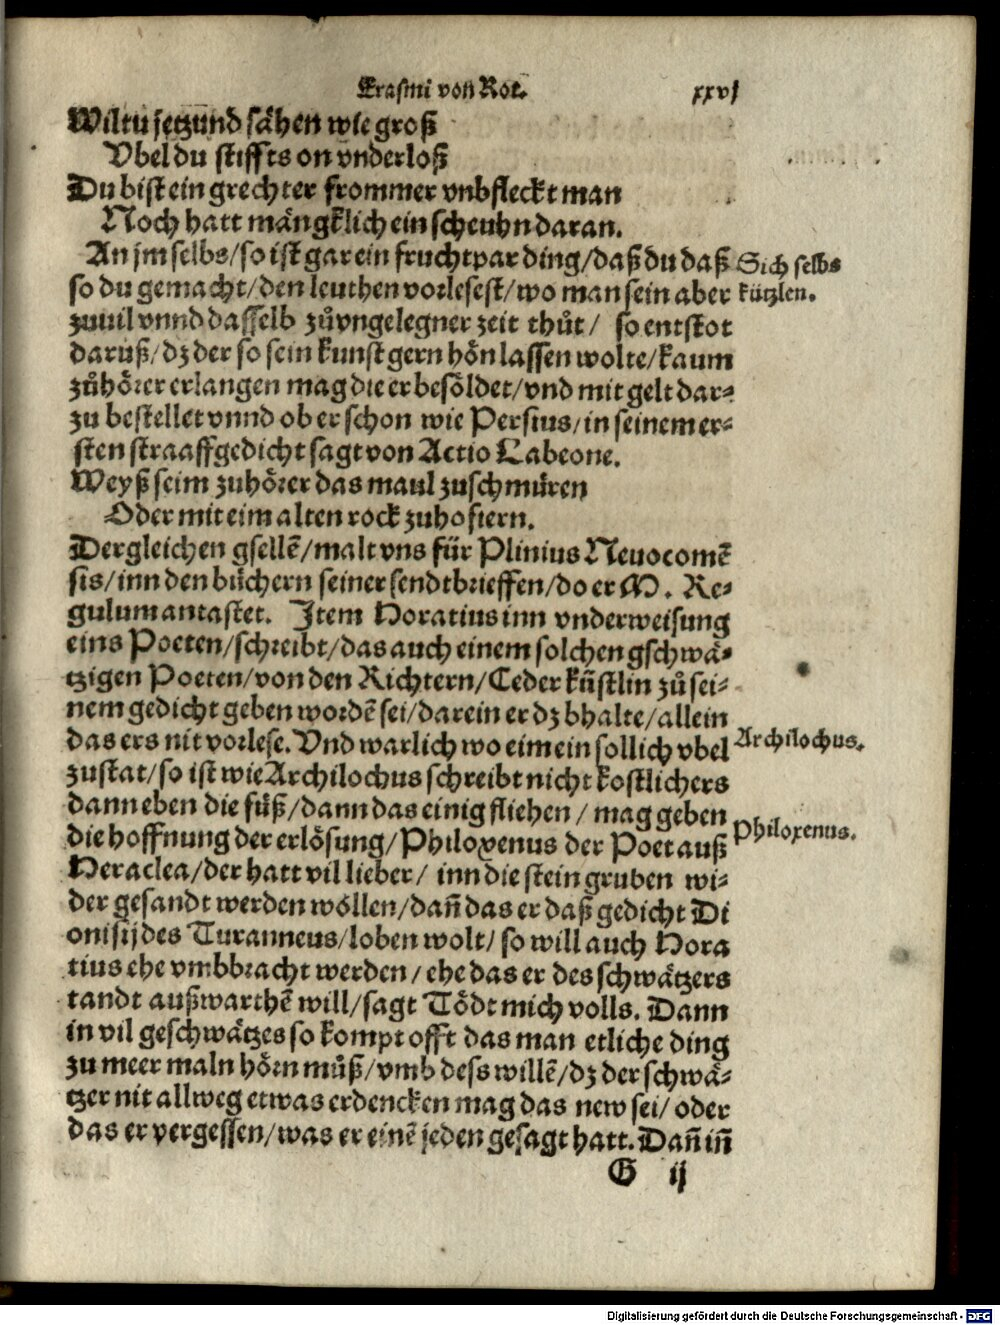 Erasmi von Rot. xxvj
Wiltu jetzund sähen wie groß
Vbel du stiffts on vnderloß
Du bist ein grechter frommer vnbfleckt man
Noch hatt mängklich ein scheuhn daran.
An jm selbs/so ist gar ein fruchtpar ding/daß du daß
so du gemacht/den leuthen vorlesest/wo man sein aber
zuuil vnnd dasselb zůvngelegner zeit thůt/ so entstot
daruß/dz der so sein kunst gern hön lassen wolte/kaum
zůhörer erlangen mag die er besöldet/vnd mit gelt dar⸗
zu bestellet vnnd ob er schon wie Persius/in seinem er⸗
sten straaffgedicht sagt von Actio Labeone.
Weyß seim zuhörer das maul zuschmüren
Oder mit eim alten rock zuhofiern.
Dergleichen gsellẽ/malt vns für Plinius Neuocomẽ
sis/inn den büchern seiner sendtbrieffen/do er M. Re⸗
gulum antastet. Item Horatius inn vnderweisung
eins Poeten/schreibt/das auch einem solchen gschwä⸗
tzigen Poeten/von den Richtern/Ceder küstlin zů sei⸗
nem gedicht geben wordẽ sei/darein er dz bhalte/allein
das ers nit vorlese. Vnd warlich wo eim ein sollich vbel
zustat/so ist wie Archilochus schreibt nicht kostlichers
dann eben die füß/dann das einig fliehen / mag geben
die hoffnung der erlösung/Philoxenus der Poet auß
Heraclea/der hatt vil lieber/ inn die stein gruben wi⸗
der gesandt werden wöllen/dañ das er daß gedicht Di
onisij des Turanneus/loben wolt/ so will auch Hora
tius ehe vmbbracht werden/ehe das er des schwätzers
tandt außwarthẽ will/sagt Tödt mich volls. Dann
in vil geschwätzes so kompt offt das man etliche ding
zu meer maln hörn můß/vmb dess willẽ/dz der schwä⸗
tzer nit allweg etwas erdencken mag das new sei/ oder
das er vergessen/was er einẽ jeden gesagt hatt. Dañ iñ
G ij
Sich selbs
kützlen.
Archilochus.
Philoxenus.
Digitalisierung gefördert durch die Deutsche Forschungsgemeinschaft - DFG